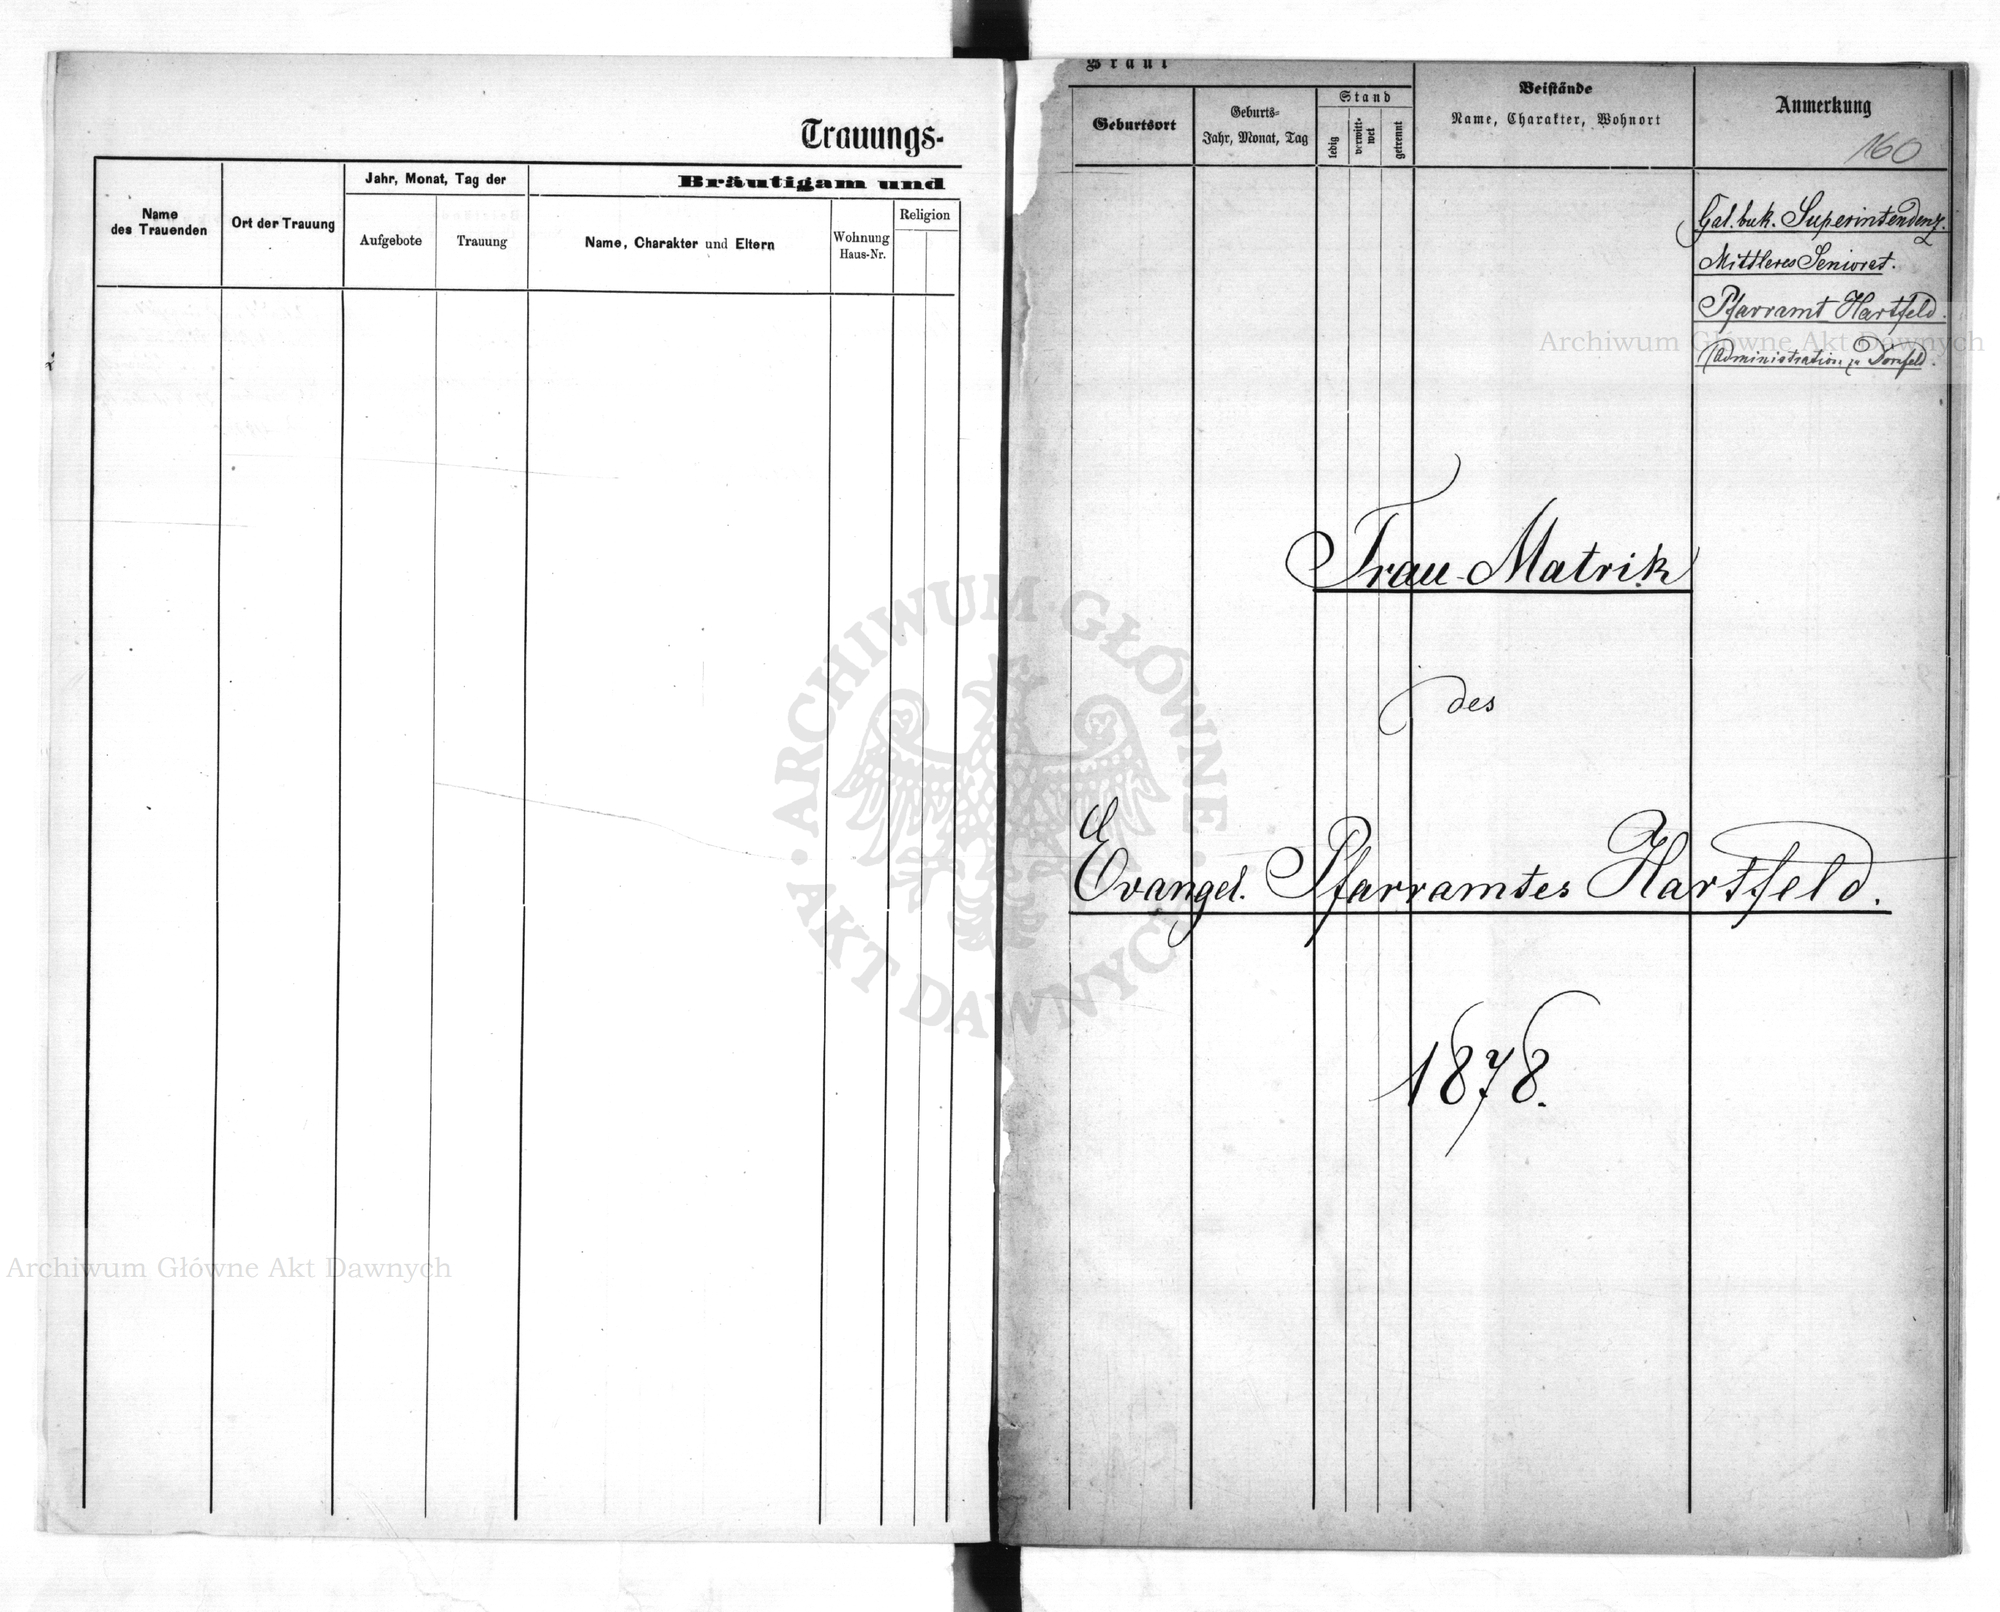 Trauungs-
Name
des Trauenden
Ort der Trauung
Jahr, Monat, Tag der
Aufgebote
Trauung
Bräutigam und
Name, Charakter und Eltern
Wohnung
Haus-Nr.
Religion
Braut
Geburtsort
Geburts-
Jahr, Monat, Tag
Stand
ledig
verwitt-
wet
getrennt
Beistände
Name, Charakter, Wohnort
Anmerkung
160
Gal. buk. Superintendenz.
Mittleres Seniorat.
Pfarramt Hartfeld.
Administration zu Dornfeld.
Trau-Matrik
des
Evangel. Pfarramtes Hartfeld.
1878.
Archiwum Główne Akt Dawnych
Archiwum Główne Akt Dawnych
ARCHIWUM GŁÓWNE · AKT DAWNYCH ·